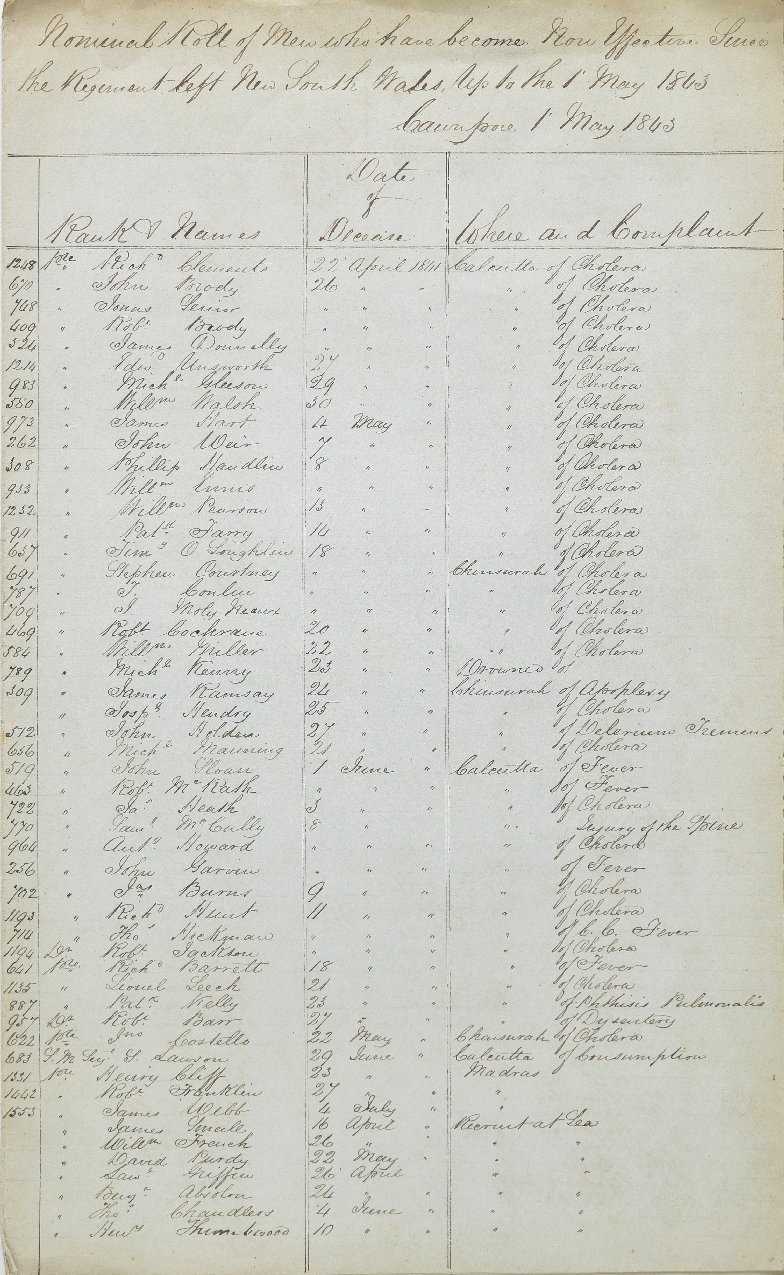 Nominal Roll of Men who have become Non Effective Since
the Regiment left New South Wales, Up to the 1st May 1843
Cawnpore 1st May 1843
Date
of
Rank & Names Decease Where and Complaint
1248 Pte Richd Clements 22 April 1841 Calcutta of Cholera
670 " John Brody 26 " " " of Cholera
748 " Jonas Senior " " " " of Cholera
409 " Robt Brody " " " of Cholera
524 " James Donnelly " " " " of Cholera
1214 " Edwd Unsworth 27 " " " of Cholera
983 " Michl Gleeson 29 " " " of Cholera
580 " Willm Walsh 30 " " " of Cholera
973 " James Hart 4 May " " of Cholera
262 " John Weir 7 " " " of Cholera
308 " Phillip Handlin 8 " " " of Cholera
933 " Willm Innis " " " " of Cholera
1232 " Willm Pearson 13 " " " of Cholera
911 " Patk Farry 14 " " " of Cholera
637 " Timy O'Loughlin 18 " " " of Cholera
691 " Stephen Courtney " " " Chinsurah of Cholera
787 " T. Conlin " " " " of Cholera
709 " J. " " " " of Cholera
469 " Robt Cochrane 20 " " " of Cholera
584 " Willm Miller 22 " " " of Cholera
789 " Michl Kenny 23 " " Drowned of
309 " James Ramsay 24 " " Chinsurah of Apoplexy
" Josph Hendry 25 " " " of Cholera
512 " John Holden 27 " " " of Delerium Tremens
656 " Michl Manning 21 " " " of Cholera
519 " John Sloan 1 June " Calcutta of Fever
463 " Robt McKath " " " " of Fever
722 " Jas Heath 3 " " " of Cholera
770 " Saml McCully 8 " " " Injury of the Spine
964 " Anty Howard " " " " of Cholera
256 " John Garvan " " " " of Fever
702 " Jas Burns 9 " " " of Cholera
1193 " Richd Hunt 11 " " " of Cholera
714 " Thos Hickman " " " " of C. C. Fever
1194 Dr Robt Jackson " " " " of Cholera
641 Pte Richd Barrett 18 " " " of Fever
1135 " Lionel Leech 21 " " " of Cholera
887 " Patk Kelly 23 " " " of Phthisis Pulmonalis
957 Dr Robt Barr 27 " " " of Dysentery
622 Pte Jno Costello 22 May " Chinsurah of Cholera
683 Lawson 29 June " Calcutta of Consumption
1331 Pte Henry Cliff 23 " " Madras
1442 " Robt Franklin 27 " " "
1553 " James Webb 4 July " "
" James Small 16 April " Recruit at Sea
" Willm French 26 " " " "
" David Purdy 22 May " " "
" Lawe Griffin 26 April " " "
" Benjn Absolon 24 " " " "
" Thos Chandlers 4 June " " "
" Heny Thimblewood 10 " " " "